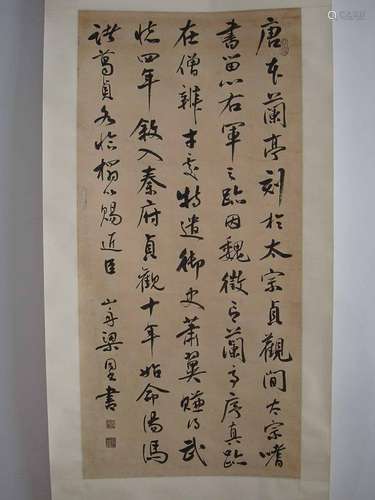 唐本蘭亭刻於太宗貞觀間太宗嗜
書留心右軍之跡因魏徵言蘭亭序真跡
在僧辯才處特遣御史蕭翼賺得武
德四年敘入秦府貞觀十年始命湯馮
諸葛貞各臨搨以賜近臣
山舟梁同書